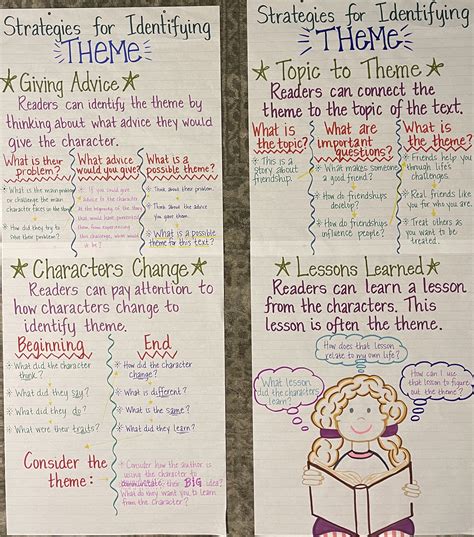 Strategies for Identifying
THEME
★ Giving Advice ★
Readers can identify the theme by
thinking about what advice they would
give the character.
What is their
problem?
* What is the main problem
or challenge the main
character faces in the story?
* How did they try to
solve their problem?
What advice
would you give?
* If you could give
advice to the character
at the beginning of the story
that would have prevented
them from experiencing
this challenge, what would
it be?
What is a
possible theme?
* Think about their problem.
* Think about the advice
you gave them.
* What is a possible
theme for this text?
★ Characters Change ★
Readers can pay attention to
how characters change to
identify theme.
Beginning
* What did the character
think?
* What did they say?
* What did they do?
* What were their traits?
End
* How did the character
change?
* What is different?
* What is the same?
* What did they learn?
Consider the
theme:
* Consider how the author is
using the character to
communicate their BIG idea?
What do they want you to learn
from the character?
Strategies for Identifying
THEME
★ Topic to Theme ★
Readers can connect the
theme to the topic of the text.
What is
the topic?
* This is a
story about
friendship.
What are
important
questions?
* What makes someone
a good friend?
* How do friendships
develop?
* How do friendships
influence people?
What is
the theme?
* Friends help you
through life's
challenges.
* Real friends like
you for who you are.
* Treat others as
you want to be
treated.
★ Lessons Learned ★
Readers can learn a lesson
from the characters. This
lesson is often the theme.
How does that lesson
relate to my own life?
What lesson
did the characters
learn?
How can I use
that lesson to figure
out the theme?